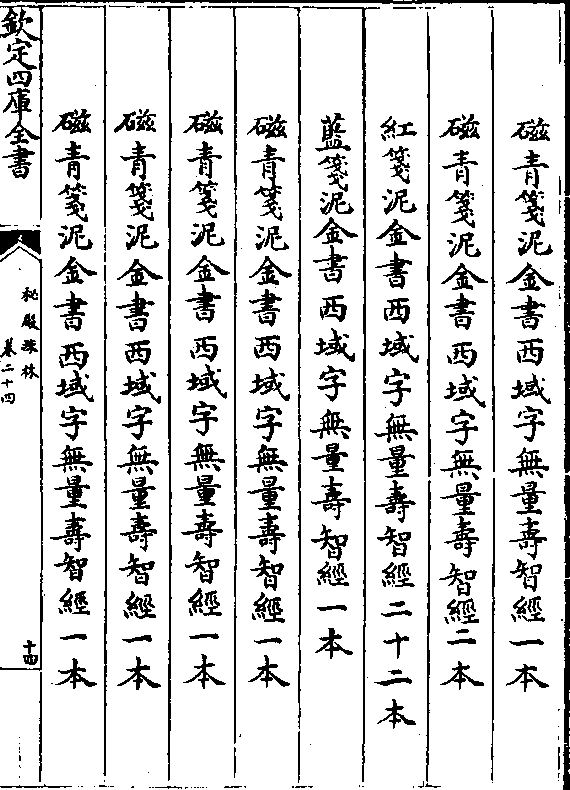 磁青箋泥金書西域字無量壽智經一本
磁青箋泥金書西域字無量壽智經二本
紅箋泥金書西域字無量壽智經二十二本
藍箋泥金書西域字無量壽智經一本
磁青箋泥金書西域字無量壽智經一本
磁青箋泥金書西域字無量壽智經一本
磁青箋泥金書西域字無量壽智經一本
磁青箋泥金書西域字無量壽智經一本
欽定四庫全書
秘殿珠林
卷二十四
十四